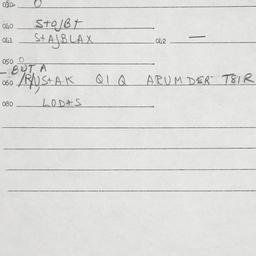 030 0
040 S+OJB+
041 S+AJBLAX 042 —
050 0
– BUT A
060 /R/US+AK QIQ ARUMDER T8IR
080 LOD+S